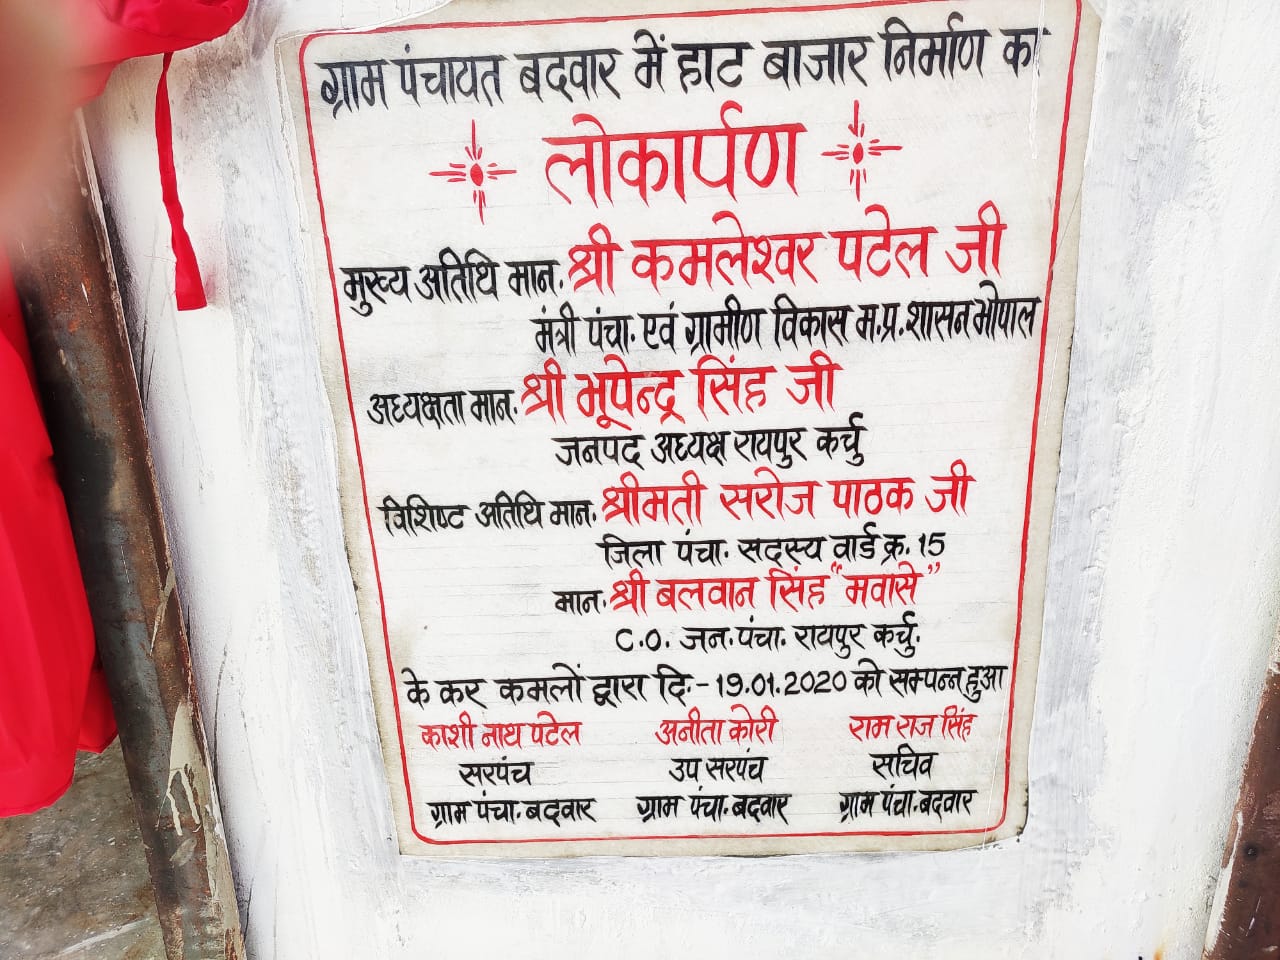 ग्राम पंचायत बदवार में हाट बाजार निर्माण का
लोकार्पण
मुख्य अतिथि मान. श्री कमलेश्वर पटेल जी
मंत्री पंचा. एवं ग्रामीण विकास म.प्र. शासन भोपाल
अध्यक्षता मान. श्री भूपेन्द्र सिंह जी
जनपद अध्यक्ष रायपुर कर्चु
विशिष्ट अतिथि मान. श्रीमती सरोज पाठक जी
जिला पंचा. सदस्य वार्ड क्र. 15
मान. श्री बलवान सिंह "मवासे"
C.O. जन. पंचा. रायपुर कर्चु.
के कर कमलों द्वारा दि.- 19.01.2020 को सम्पन्न हुआ
काशी नाथ पटेल अनीता कोरी राम राज सिंह
सरपंच उप सरपंच सचिव
ग्राम पंचा. बदवार ग्राम पंचा. बदवार ग्राम पंचा. बदवार